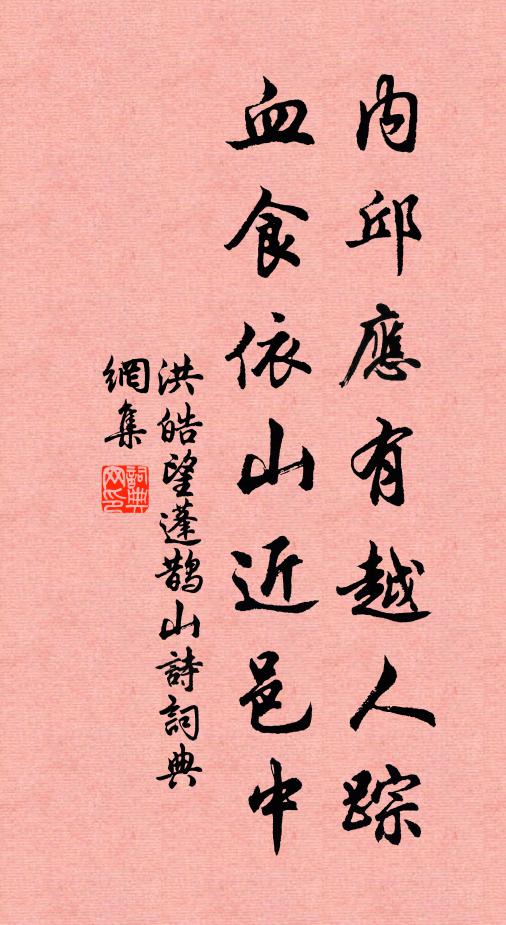 內邱應有越人踪
血食依山近邑中
洪皓望蓬鵲山詩詞典
網集
詞典
网印